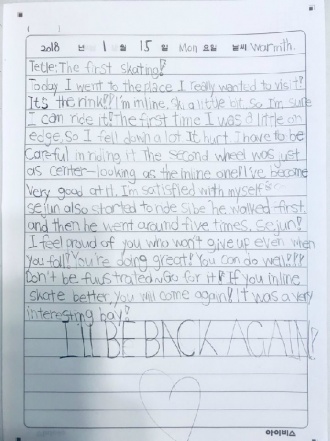 2018 년 1 월 15 일 Mon 요일 날씨 Warmth.
Title: The first skating!
Today I went to the place I really wanted to visit!
It's the rink!! I'm inline ski a little bit. So I'm sure
I can ride it! The first time I was a little on
edge, So I fell down a lot. It hurt. I have to be
Careful in riding it. The second wheel was just
as center-looking as the inline one!! I've become
Very good at it. I'm satisfied with myself
sejun also started to ride. he walked first,
and then he went around five times. sejun!
I feel proud of you who won't give up even when
you fall! You're doing great! You can do well!!!
Don't be fuustrated Go for it!! If you inline
skate better, you will come again! It was a very
interesting day!
I'LL BE BACK AGAIN!
아이비스